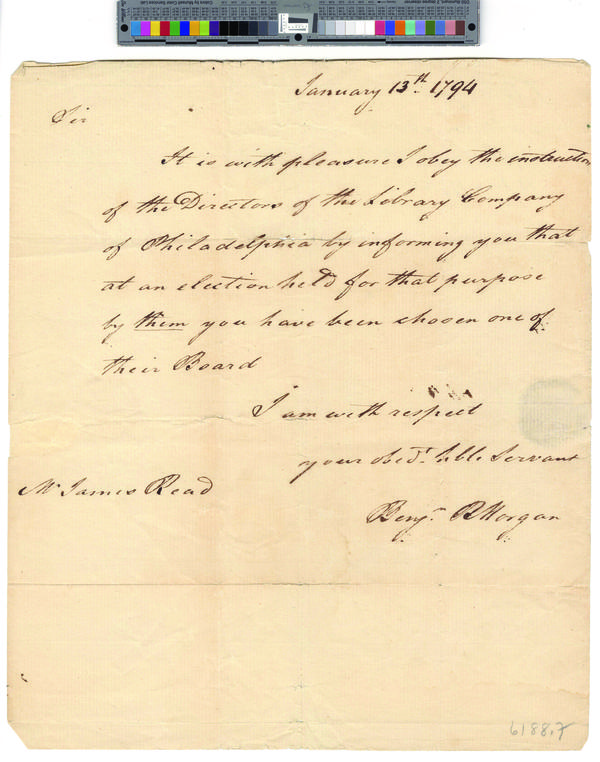 January 13th. 1794
Sir
It is with pleasure I obey the instruction
of the Directors of the Library Company
of Philadelphia by informing you that
at an election held for that purpose
by them you have been chosen one of
their Board
I am with respect
your obedt. hble Servant
Mr James Read
Benjn. R Morgan
6188.7